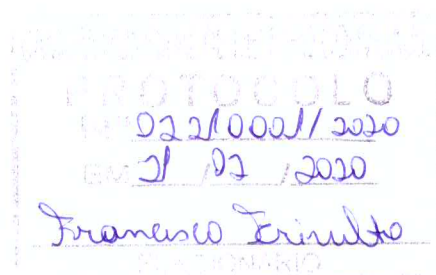 PROTOCOLO
Nº 02210001/2020
EM 21 / 02 / 2020
Francisco
FUNCIONÁRIO